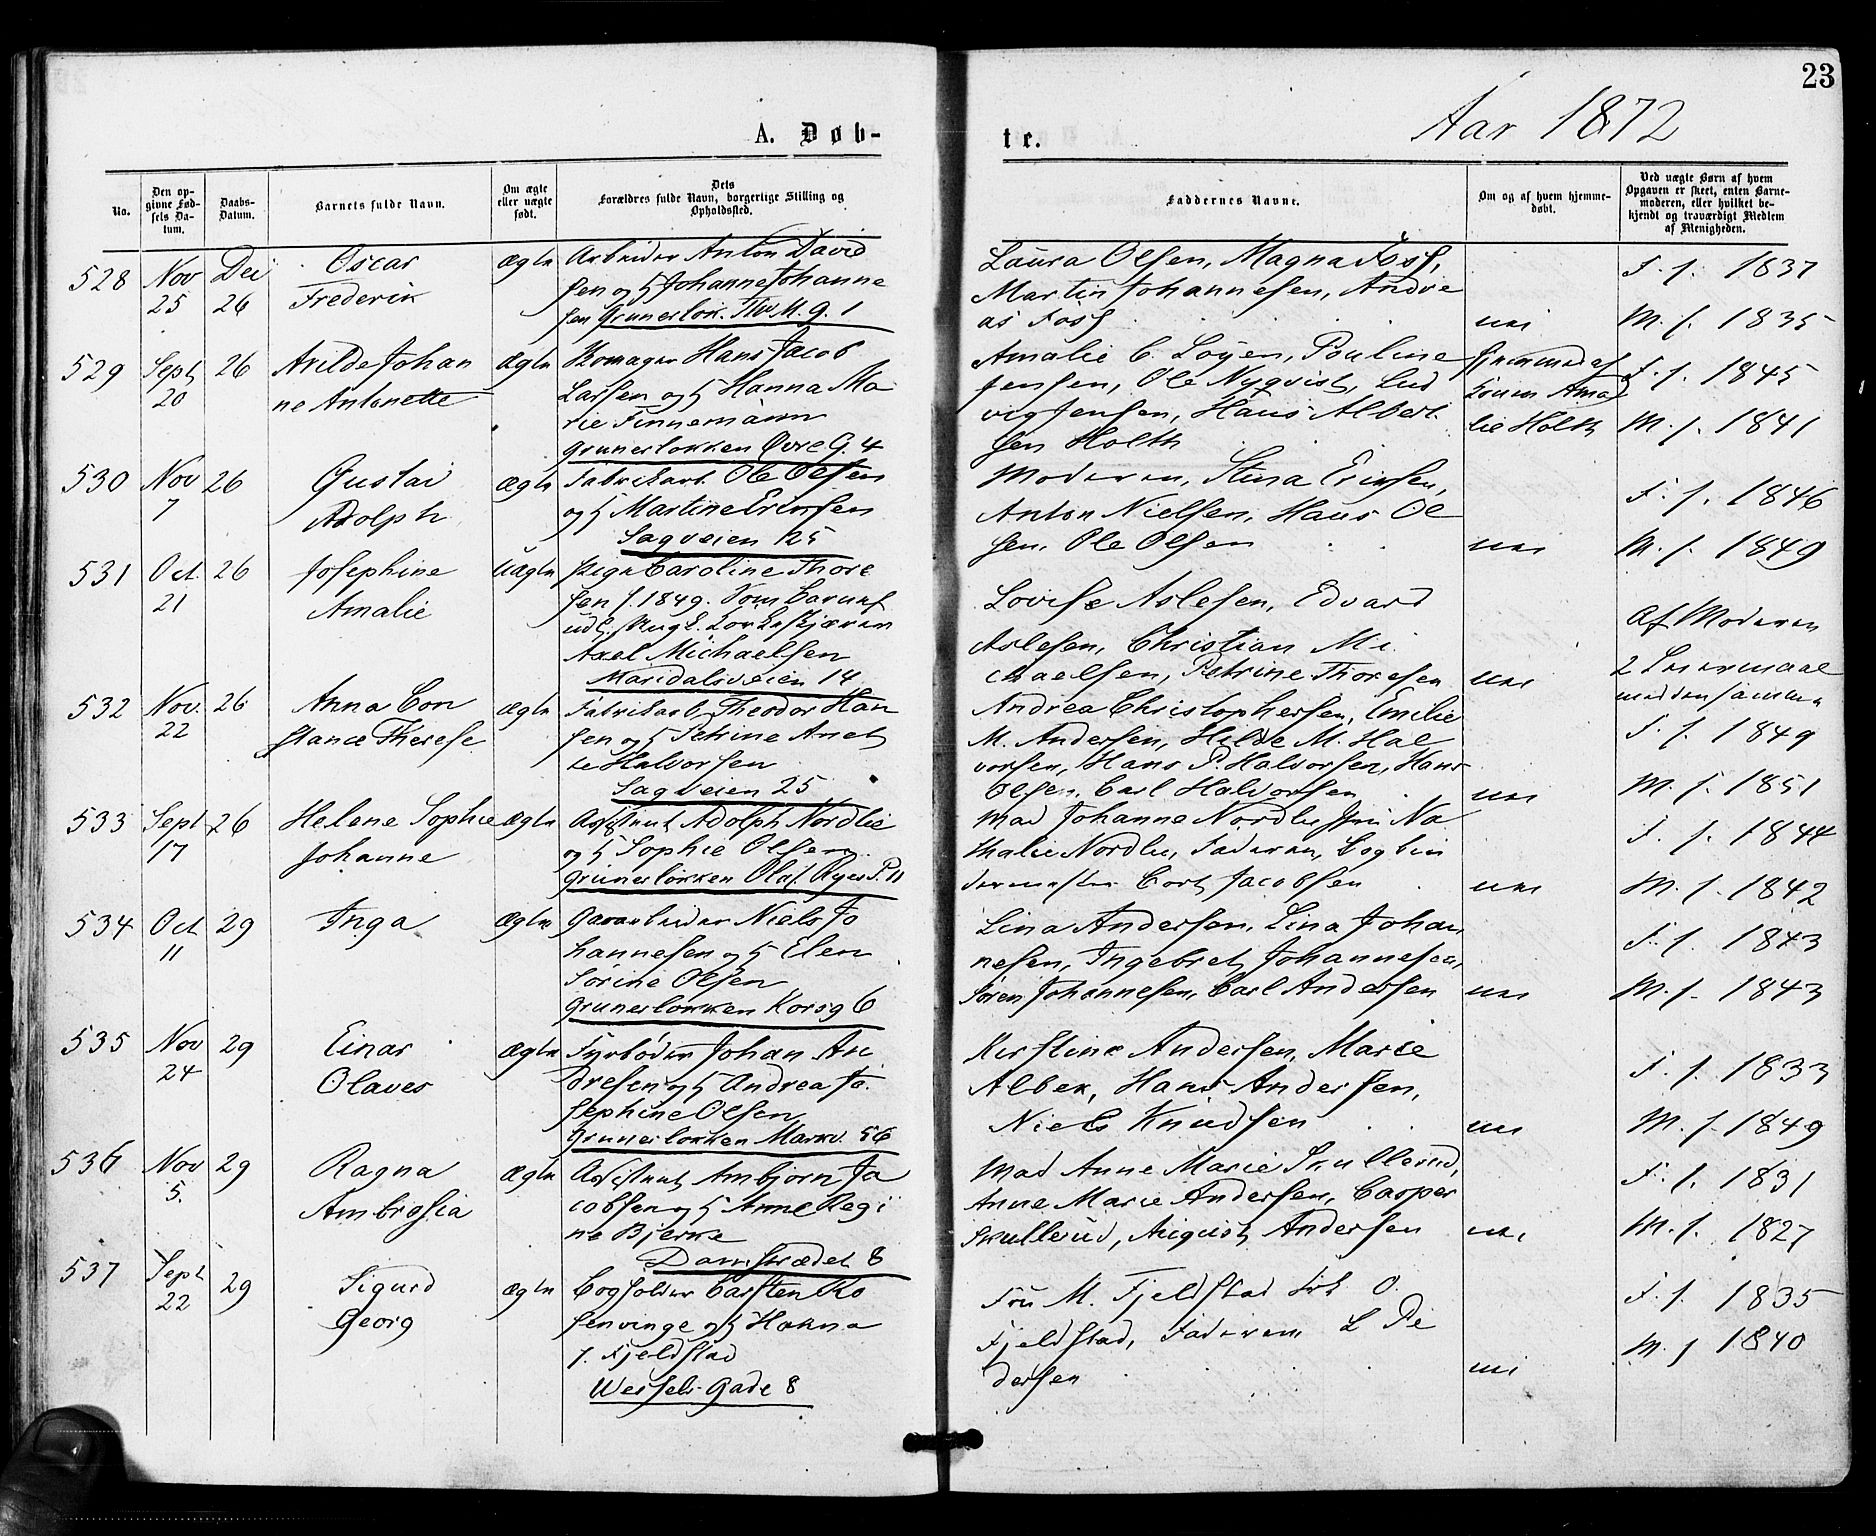 23
Aar 1872
A. Døb-
te.
No.
Den op-
givne Fød-
sels Da-
tum.
Daabs-
Datum.
Barnets fulde Navn.
Om ægte
eller uægte
født.
Dets
Forældres fulde Navn, borgerlige Stilling og
Opholdssted.
Faddernes Navne.
Om og af hvem hjemme-
døbt.
Ved uægte Børn af hvem
Opgaven er skeet, enten Barne-
moderen, eller hvilket be-
kjendt og troværdigt Medlem
af Menigheden.
528 Nov 25 Dei 26
Oscar
Frederik
ægte
Arbeider Anton David
sen og h Johanne Johanne
sen Grünerløk. Thv. M. G. 1
Laura Olsen, Magna Foss,
Martin Johannesen, Andre
as Foss
nei
F. f. 1837
M. f. 1835
529 Sept 20 26
Avilde Johan
ne Antonette
ægte
Skomager Hans Jacob
Larsen og h Hanna Ma
rie Finnemann
Grunerløkken Øvre G. 4
Amalie C. Løyen, Pouline
Jensen, Ole Nyqvist, Lud
vig Jensen, Hans Albert
sen Holth
hjemmed af
Amal
lie Holth
F. f. 1845
M. f. 1841
530 Nov 7 26
Gustav
Adolph
ægte
Fabrikarb. Ole Olsen
og h Martine Eriksen
Sagveien 125
Moderen, Stina Eriksen,
Anton Nielsen, Hans Ol
sen, Ole Olsen
nei
F. f. 1846
M. f. 1849
531 Oct. 21 26
Josephine
Amalie
uægte
Pige Caroline Thore
sen f. 1849. Som Barnef
udl. Ungk.
Axel Michaelsen
Maridalsveien 14
Lovise Aslesen, Edvard
Aslesen, Christian Mi
chaelsen, Petrine Thoresen
nei
Af Moderen
2
med den samme
532 Nov. 22 26
Anna Con
stance Therese
ægte
Fabrikarb. Theodor Han
sen og h Petrine Anet
te Halvorsen
Sagveien 25
Andrea Christophersen, Emilie
M. Andersen, Hilda M. Hal
vorsen, Hans P. Halvorsen, Hans
Olsen, Carl Halvorsen
nei
F. f. 1849
M. f. 1851
533 Sept 17 26
Helene Sophie
Johanne
ægte
Assistent Adolph Nordlie
og h Sophie Olsen
Grünerløkken Olaf Ryes P. 11
Mad Johanne Nordlie, Frü Na
thalie Nordlie, Faderen, Bogbin
dermester Cort Jacobsen
nei
F. f. 1844
M. f. 1842
534 Oct 11 29
Inga
ægte
Gaararbeider Niels Jo
hannesen og h Elen
Sørine Olsen
Grunerløkken Korsg 6
Lina Andersen, Lina Johan
nesen, Ingebret Johannesen,
Søren Johannesen, Carl Andersen
nei
F. f. 1843
M. f. 1843
535 Nov 24 29
Einar
Olaves
ægte
Fyrbøder Johan An
dresen og h Andrea Jo
sephine Olsen
Grunerløkken Markv. 56
Kirstine Andersen, Marie
Albek, Hans Andersen,
Niels Knudsen
nei
F. f. 1833
M. f. 1849
536 Nov 5. 29
Ragna
Ambrosia
ægte
Assistent Ambjørn Ja
cobsen og h Anne Regi
ne Bjerke
Damstrædet 8
Mad Anne Marie Skullerud,
Anne Marie Andersen, Casper
Skullerud, August Andersen
nei
F. f. 1831
M. f. 1827
537 Sept 22 29
Sigurd
Georg
ægte
Bogholder Carsten Ro
senvinge og h Hanna
f. Fjeldstad
Wessels Gade 8
Frü M. Fjeldstad Frk O.
Fjeldstad, Faderen L Pe
dersen
nei
F. f. 1835
M. f 1840